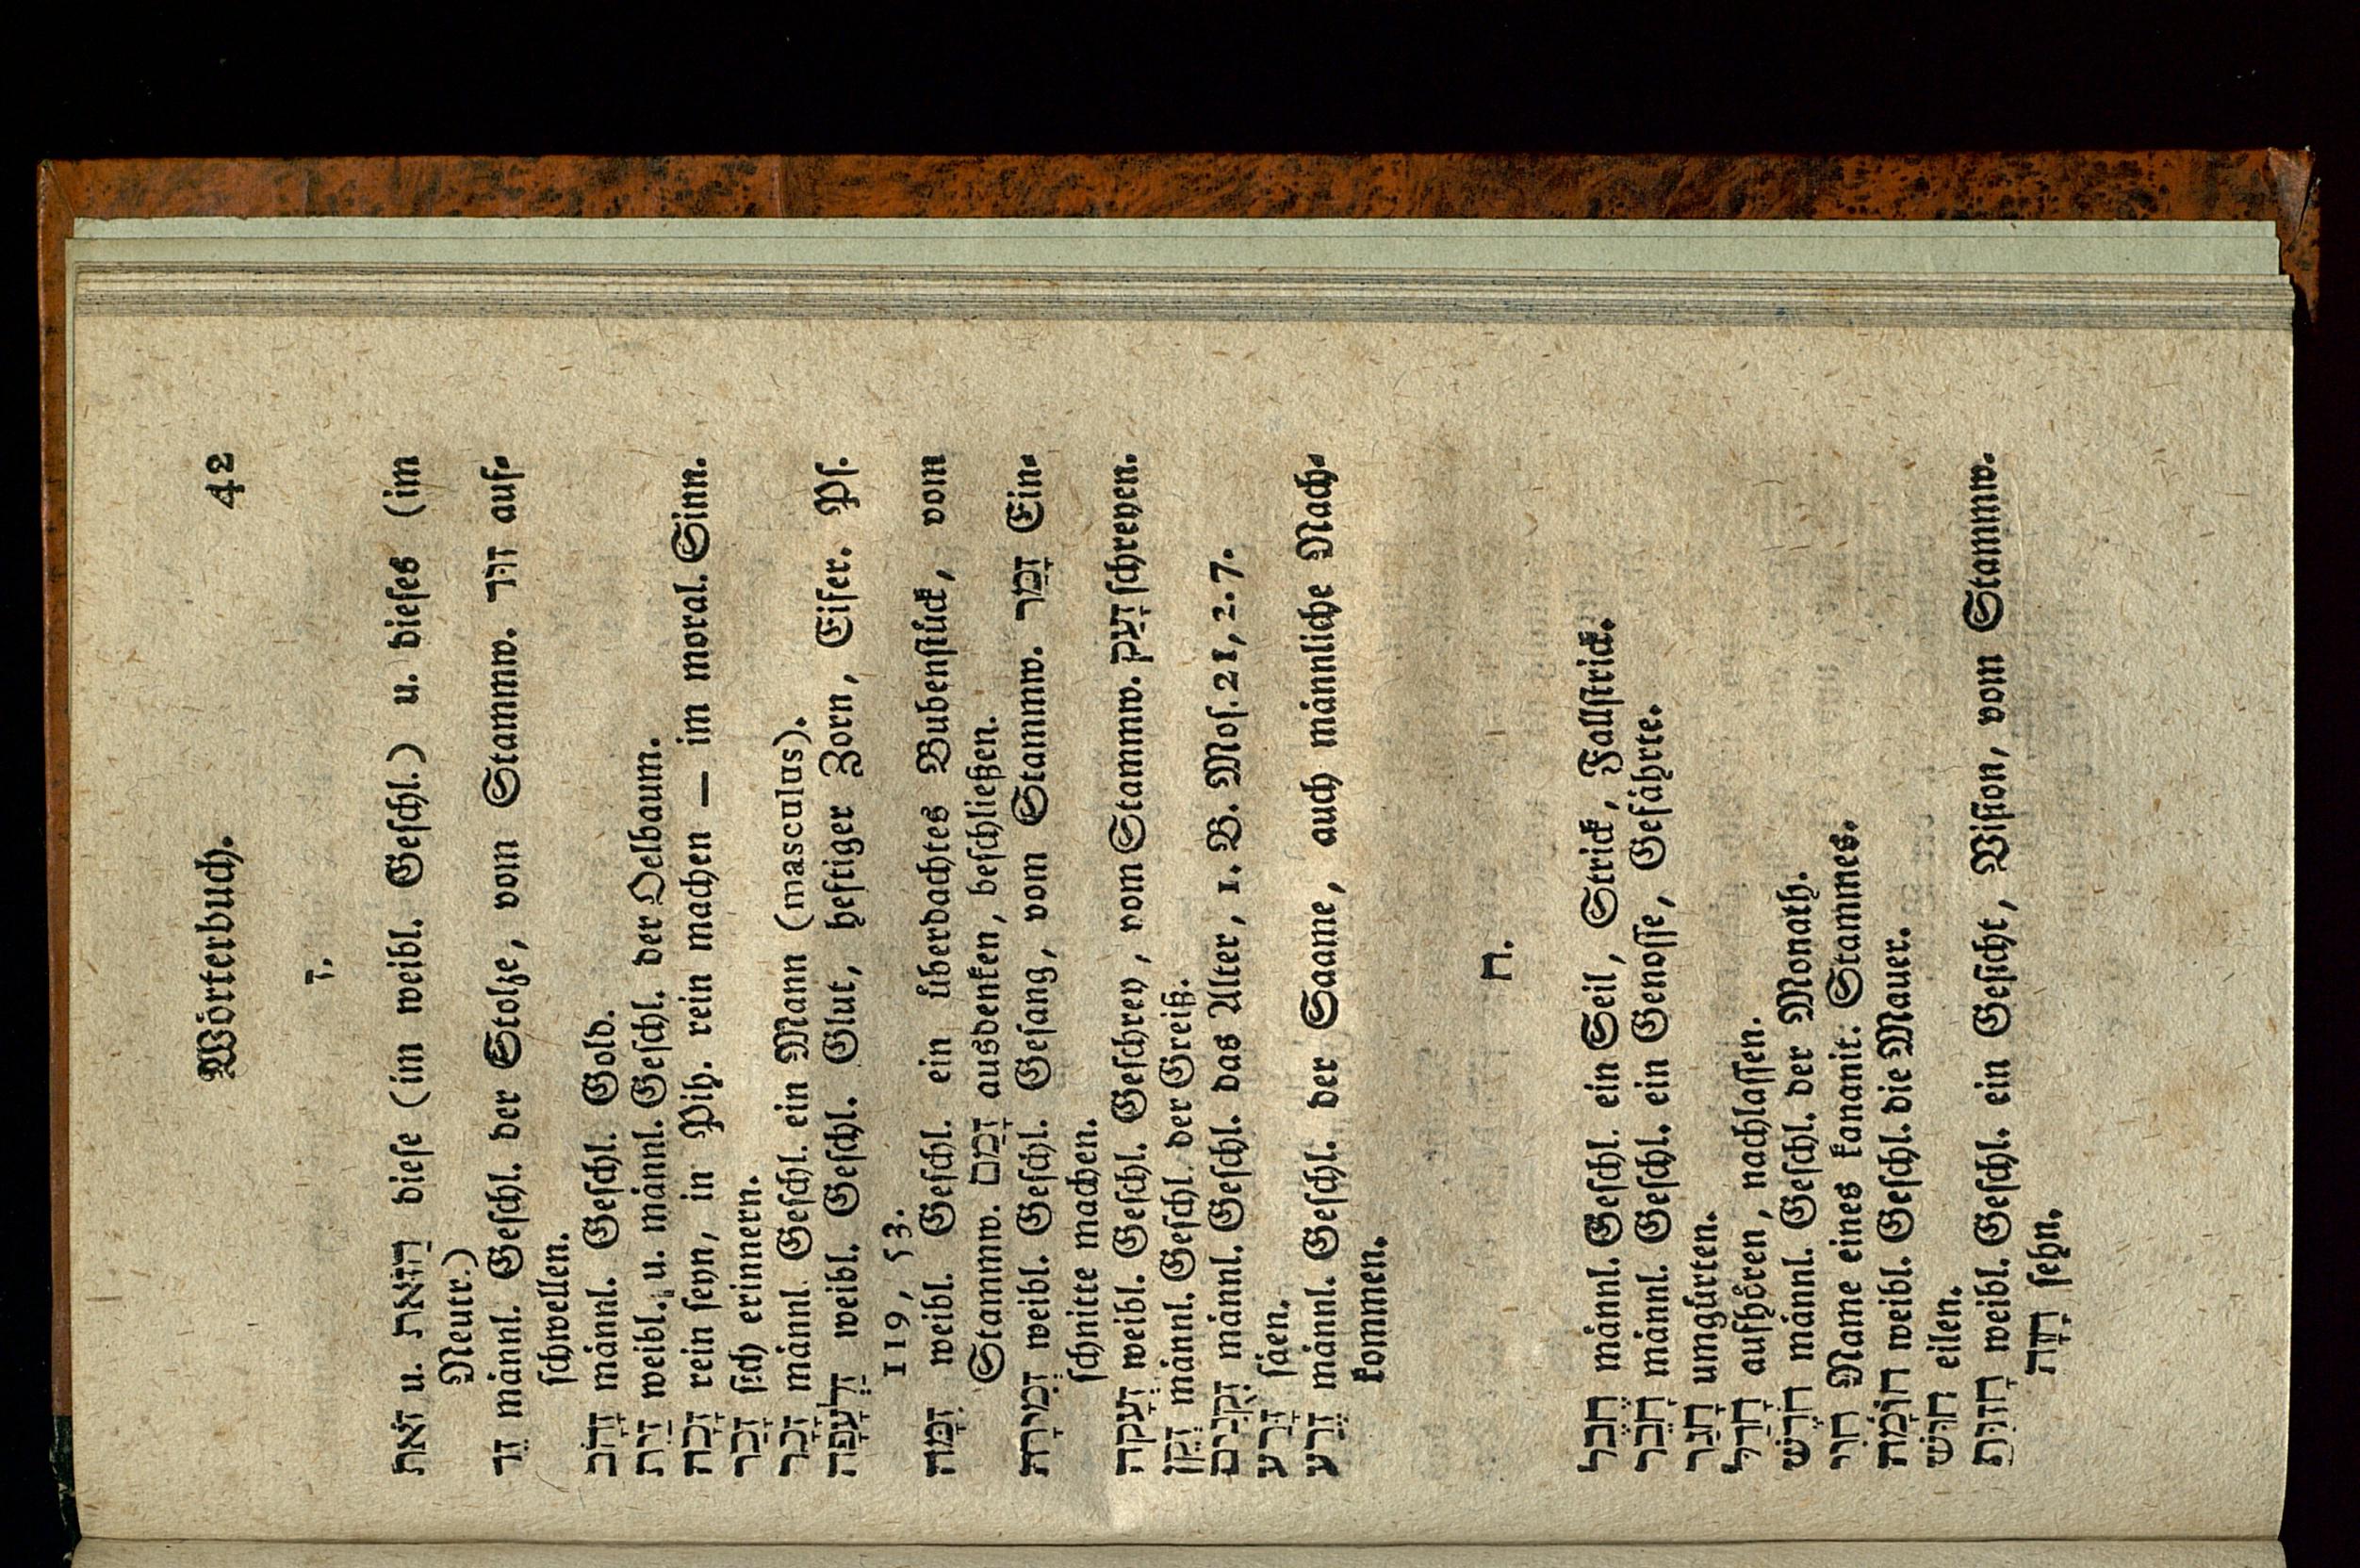 Wörterbuch. 42
ז.
זֹאת u. הַזֹּאת dieſe (im weibl. Geſchl.) u. dieſes (im
Neutr.)
זֵר männl. Geſchl. der Stolze, vom Stammw. זוּר auf-
ſchwellen.
זָהָב männl. Geſchl. Gold.
זַיִת weibl. u. männl. Geſchl. der Oelbaum.
זָכָה rein ſeyn, in Pih. rein machen — im moral. Sinn.
זָכַר ſich erinnern.
זָכָר männl. Geſchl. ein Mann (masculus).
זַלְעָפָה weibl. Geſchl. Glut, heftiger Zorn, Eifer. Pſ.
119, 53.
זִמָּה weibl. Geſchl. ein überdachtes Bubenſtück, vom
Stammw. זָמַם ausdenken, beſchließen.
זְמִירָה weibl. Geſchl. Geſang, vom Stammw. זָמַר Ein-
ſchnitte machen.
זְעָקָה weibl. Geſchl. Geſchrey, vom Stammw. זָעַק ſchreyen.
זָקֵן männl. Geſchl. der Greiß.
זְקֻנִים männl. Geſchl. das Alter, 1. B. Moſ. 21, 2. 7.
זָרַע ſäen.
זֶרַע männl. Geſchl. der Saame, auch männliche Nach-
kommen.
ח.
חֶבֶל männl. Geſchl. ein Seil, Strick, Fallſtrick.
חָבֵר männl. Geſchl. ein Genoſſe, Gefährte.
חָגַר umgürten.
חָדַל aufhören, nachlaſſen.
חֹדֶשׁ männl. Geſchl. der Monath.
חִוִּי Name eines kananit. Stammes.
חוֹמָה weibl. Geſchl. die Mauer.
חוּשׁ eilen.
חָזוּת weibl. Geſchl. ein Geſicht, Viſion, vom Stammw.
חָזָה ſehn.